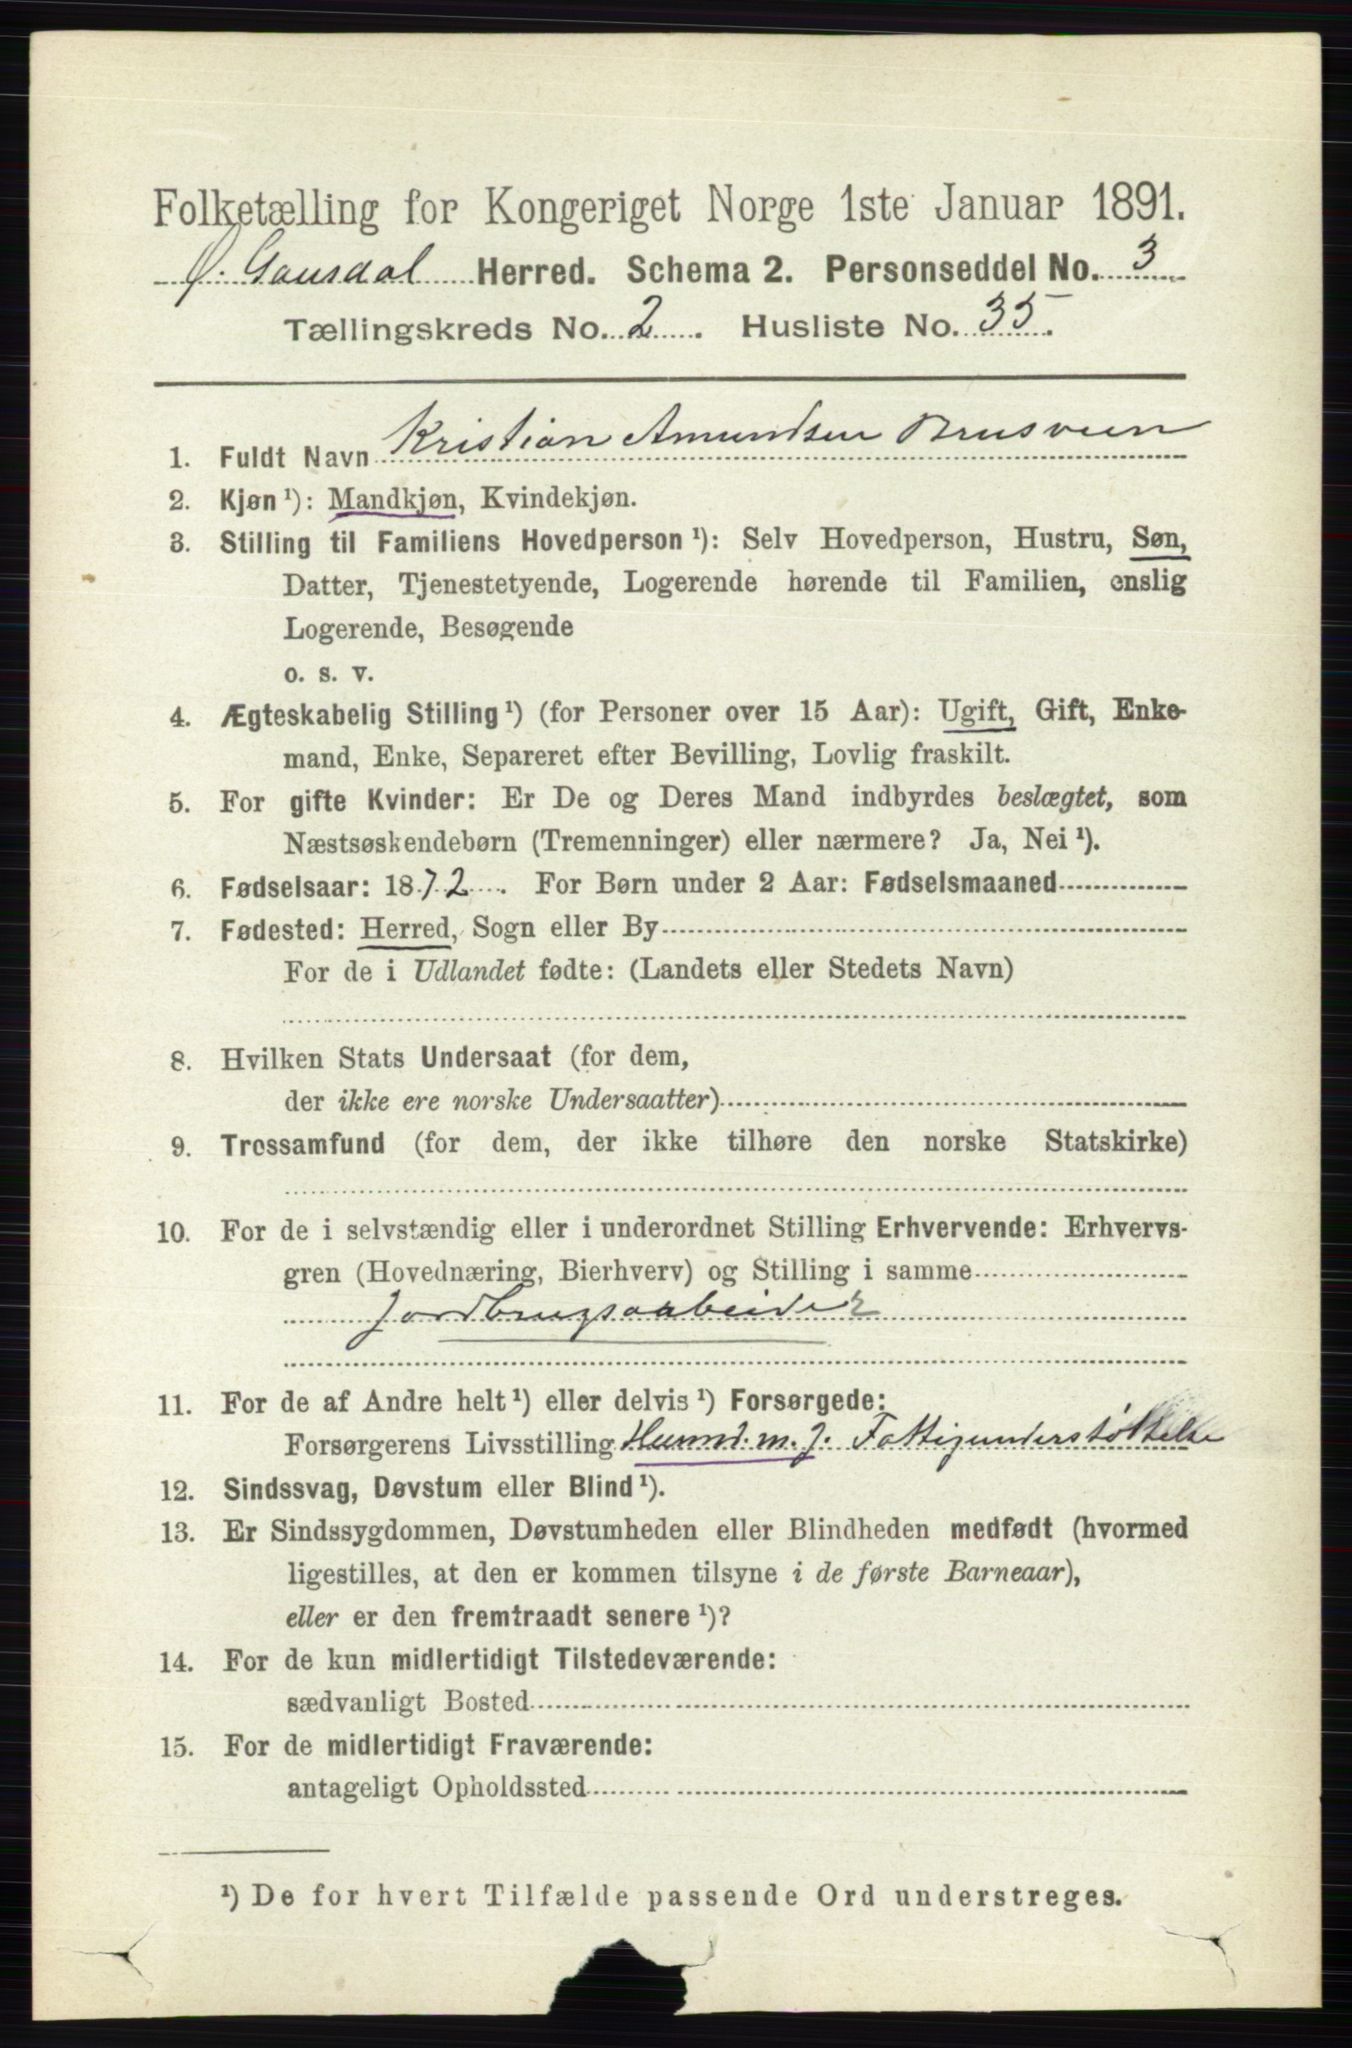 Folketælling for Kongeriget Norge 1ste Januar 1891.
Ø. Gausdal Herred. Schema 2. Personseddel No. 3
Tællingskreds No. 2. Husliste No. 35.
1. Fuldt Navn Kristian Amundsen Brusveen
2. Kjøn ¹): Mandkjøn, Kvindekjøn.
3. Stilling til Familiens Hovedperson ¹): Selv Hovedperson, Hustru, Søn,
Datter, Tjenestetyende, Logerende hørende til Familien, enslig
Logerende, Besøgende
o. s. v.
4. Ægteskabelig Stilling ¹) (for Personer over 15 Aar): Ugift, Gift, Enke-
mand, Enke, Separeret efter Bevilling, Lovlig fraskilt.
5. For gifte Kvinder: Er De og Deres Mand indbyrdes beslægtet, som
Næstsøskendebørn (Tremenninger) eller nærmere? Ja, Nei ¹).
6. Fødselsaar: 1872. For Børn under 2 Aar: Fødselsmaaned
7. Fødested: Herred, Sogn eller By
For de i Udlandet fødte: (Landets eller Stedets Navn)
8. Hvilken Stats Undersaat (for dem,
der ikke ere norske Undersaatter)
9. Trossamfund (for dem, der ikke tilhøre den norske Statskirke)
10. For de i selvstændig eller i underordnet Stilling Erhvervende: Erhvervs-
gren (Hovednæring, Bierhverv) og Stilling i samme
Jordbrugsarbeider
11. For de af Andre helt ¹) eller delvis ¹) Forsørgede:
Forsørgerens Livsstilling Husmd. m. J. Fattigunderstøttelse
12. Sindssvag, Døvstum eller Blind ¹).
13. Er Sindssygdommen, Døvstumheden eller Blindheden medfødt (hvormed
ligestilles, at den er kommen tilsyne i de første Barneaar),
eller er den fremtraadt senere ¹)?
14. For de kun midlertidigt Tilstedeværende:
sædvanligt Bosted
15. For de midlertidigt Fraværende:
antageligt Opholdssted
¹) De for hvert Tilfælde passende Ord understreges.